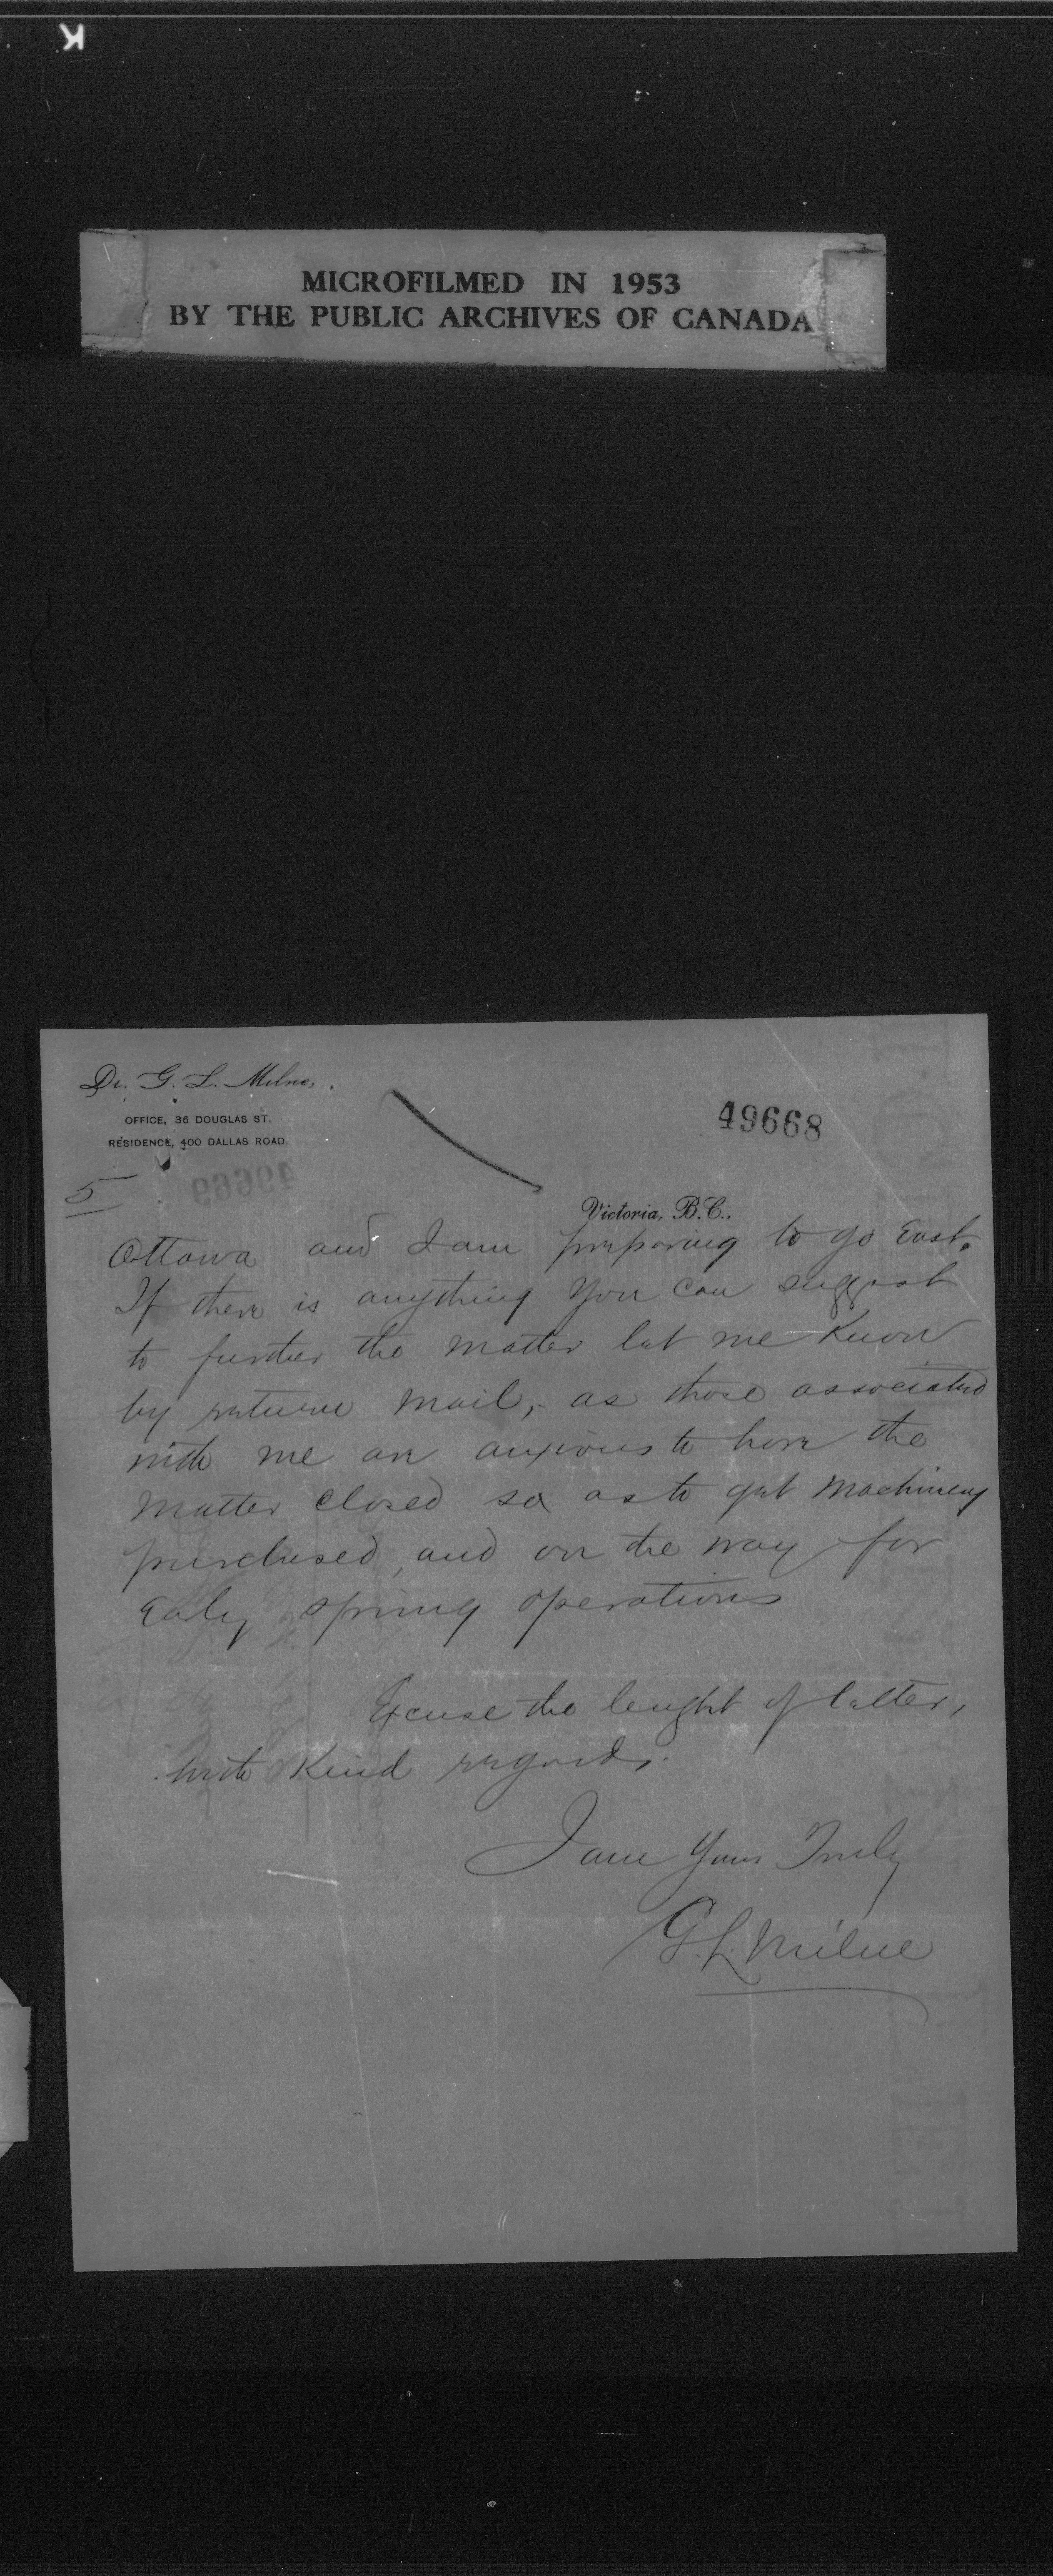 K
MICROFILMED IN 1953
BY THE PUBLIC ARCHIVES OF CANADA
Dr. G. L. Milne,
OFFICE, 36 DOUGLAS ST.
RESIDENCE, 400 DALLAS ROAD.
49668
49669
5
Victoria, B.C.,
Ottawa and I am preparing to go East.
If there is anything you can suggest
to further the matter let me know
by return mail, as those associated
with me are anxious to have the
matter closed so as to get machinery
purchased, and on the way for
Ealy spring operations
Excuse the lenght of letter,
with Kind regards.
I am Yours Truly
G. L. Milne